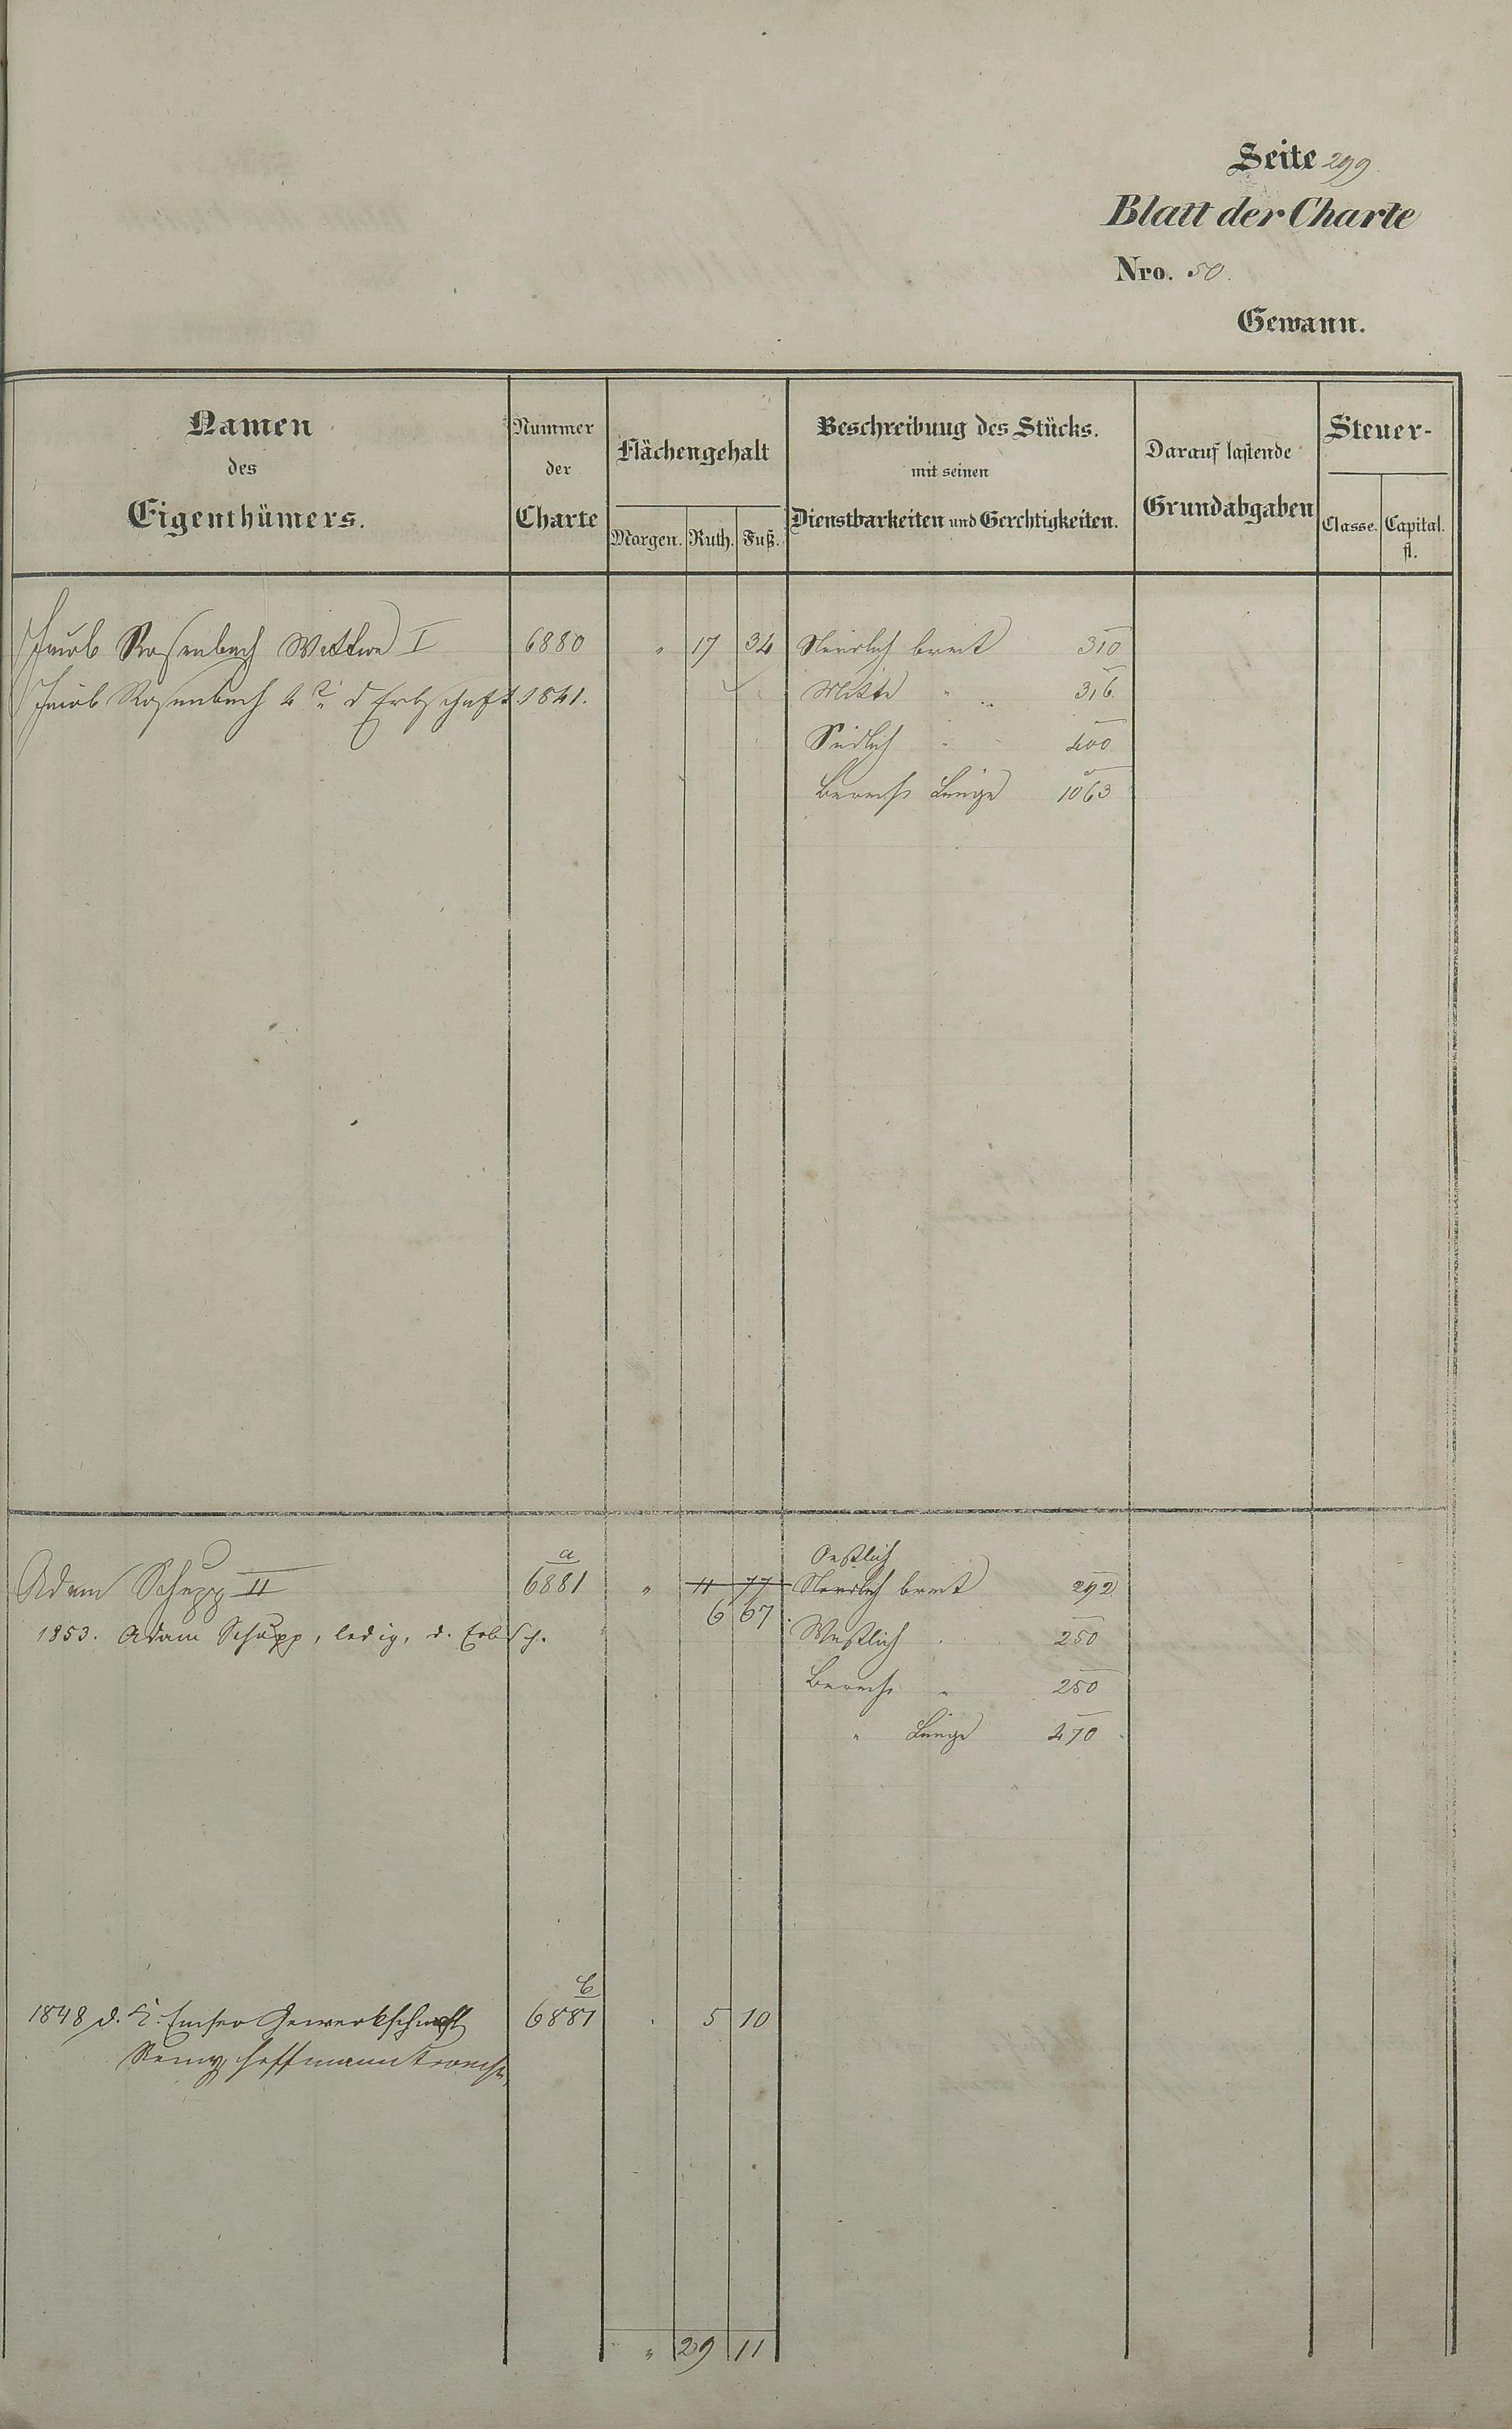 Seite 299
Blatt der Charte
Nro. 50.
Gewann.
Namen des Eigenthümers. Nummer der Charte Flächengehalt Morgen. Ruth. Fuß. Beschreibung des Stücks. mit seinen Dienstbarkeiten und Gerechtigkeiten. Darauf lastende Grundabgaben Steuer- Classe. Capital. fl.
Jacob Rosenbach Wittwe I 6880 " 17 34 Nördlich breit 310
Jacob Rosenbach d Erbschaft 1841. Mitte " 316
Südlich " 400
Berechn Länge 1063
a Oestlich
Adam Schupp II 6881 " 11 77 Nördlich breit 292
6 67
1853. Adam Schupp, ledig, d. Erbsch. Westlich 250
Berechn " 250
" Länge 470
b
1848 d. K. Emser Gewerkschaft 6881 . 5 10
Remy, Hoffmann
" 29 11